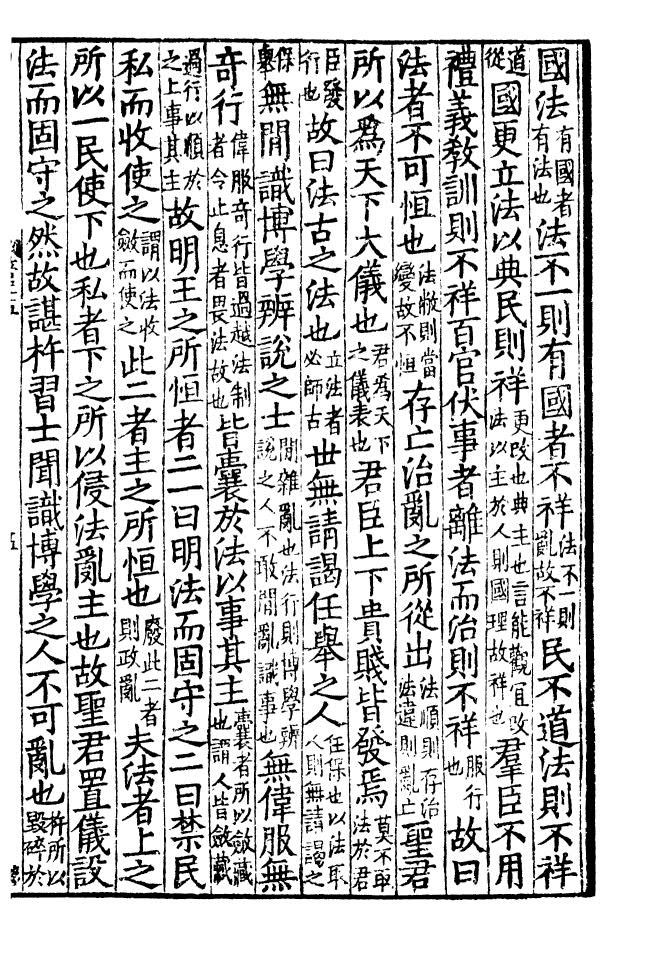 國法有國者有法也法不一則有國者不祥法不一則亂故不祥民不道法則不祥
道從國更立法以典民則祥更改也典主也言能觀宜改法以主於人則國理故祥也羣臣不用
禮義敎訓則不祥百官伏事者離法而治則不祥服行也故曰
法者不可恒也法敝則當變故不恒存亡治亂之所從出法順則存治法違則亂亡聖君
所以爲天下大儀也君爲天下之儀表也君臣上下貴賤皆發焉莫不取法於君
臣發行也故曰法古之法也立法者必師古世無請謁任舉之人任保也以法取人則無請謁之
保舉無閒識博學辨說之士閒雜亂也法行則博學辨說之人不敢閒亂識事也無偉服無
奇行偉服奇行皆過越法制者令止息者畏法故也皆囊於法以事其主囊者所以斂藏也謂人皆斂藏
過行以順於之上事其主故明王之所恒者二一曰明法而固守之二曰禁民
私而收使之謂以法收斂而使之此二者主之所恒也廢此二者則政亂夫法者上之
所以一民使下也私者下之所以侵法亂主也故聖君置儀設
法而固守之然故諶杵習士聞識博學之人不可亂也杵所以毀碎於